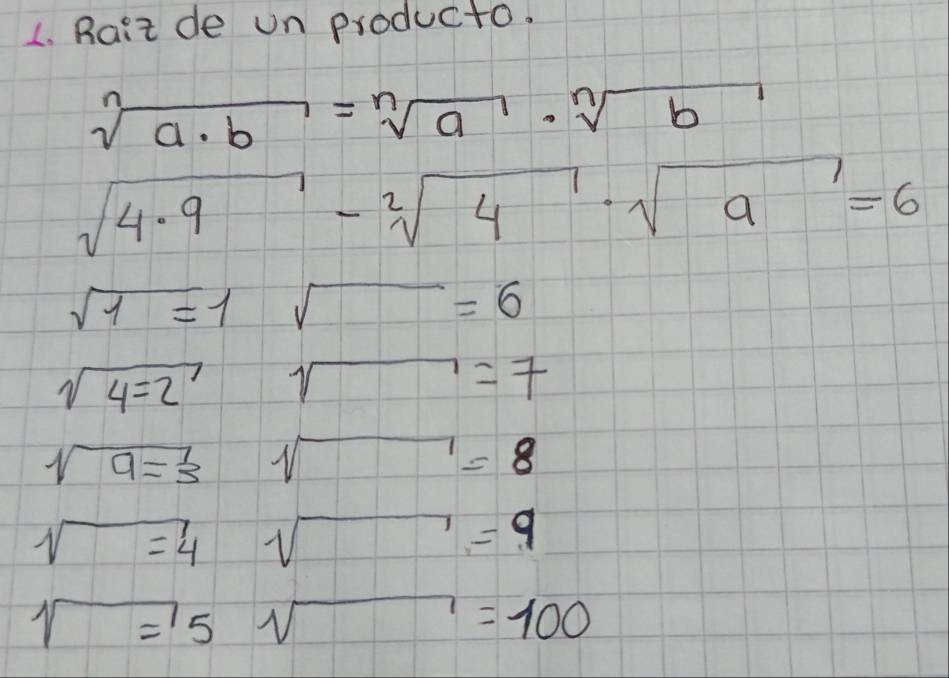 1. Raiz de un producto.
ⁿ√a·b = ⁿ√a · ⁿ√b
√4·9 - ²√4 · √9 = 6
√1 = 1 √ = 6
√4=2 √ = 7
√9=3 √ = 8
√ =4 √ = 9
√ = 5 √ = 100